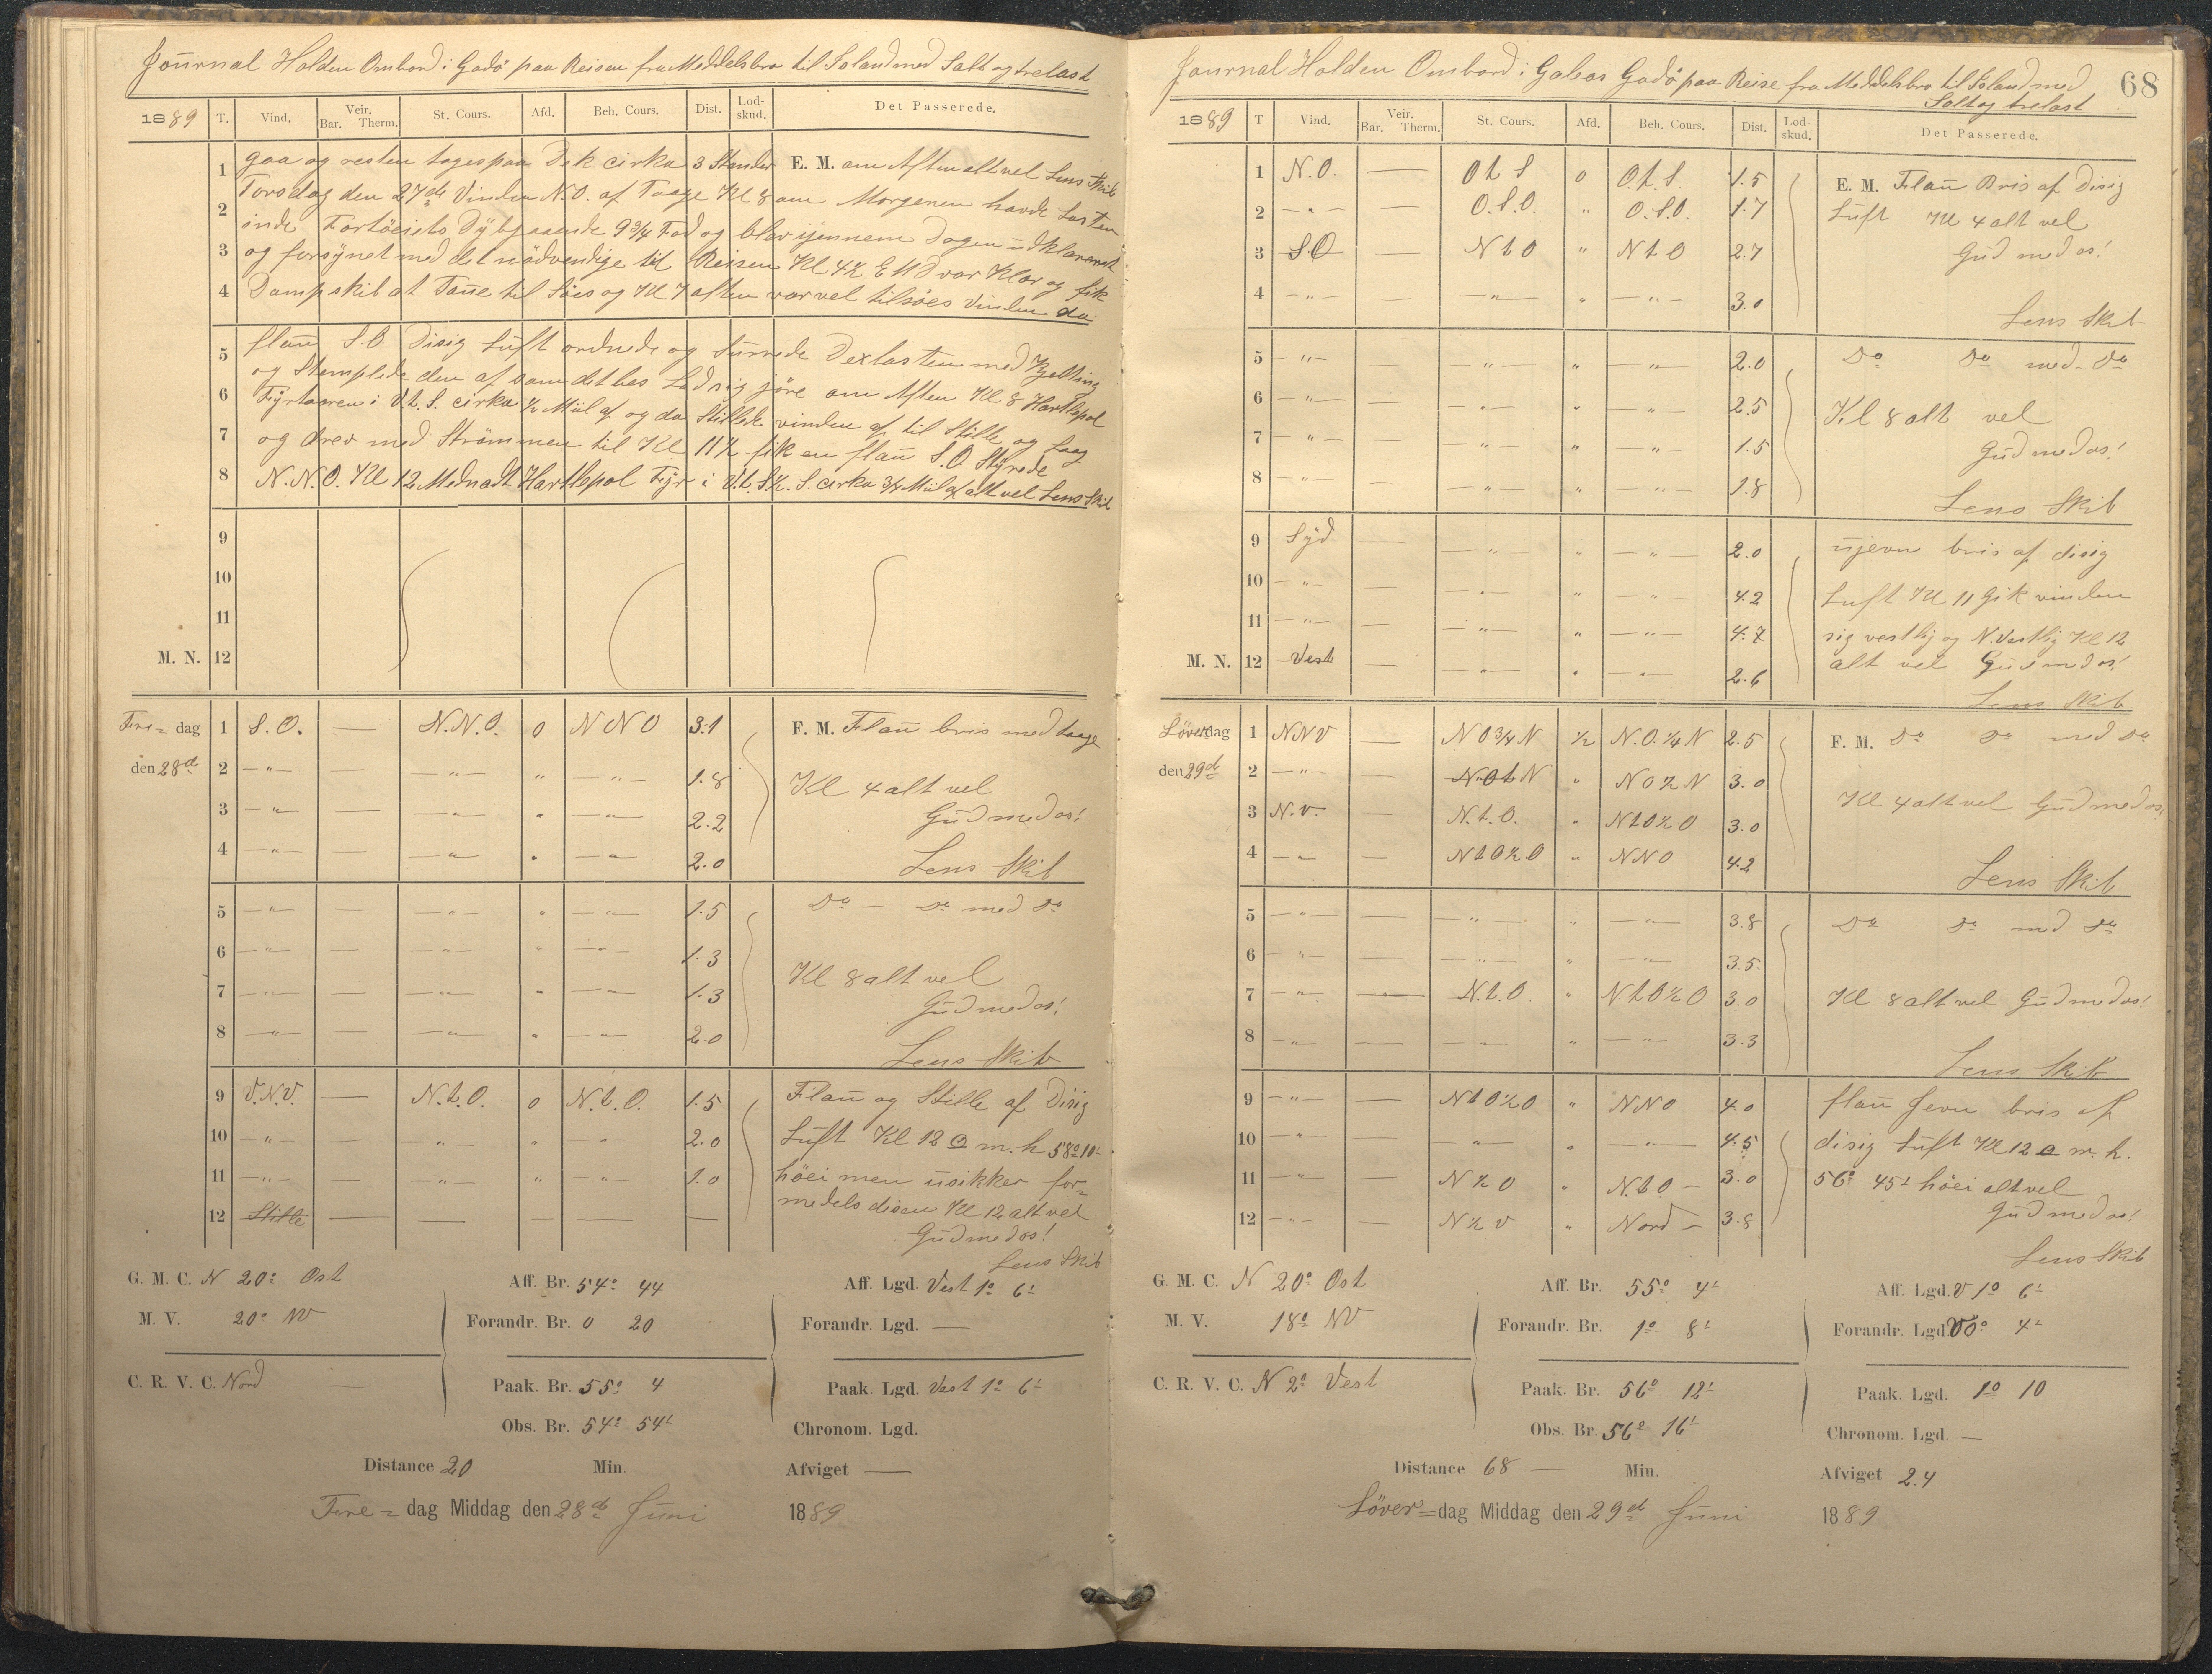 Journal Holden Ombord i Gadö paa Reisen fra Meddelsbro til Island med Salt og trelast
1889 T. Vind. Veir. Bar. Therm. St. Cours. Afd. Beh. Cours. Dist. Lod-skud. Det Passerede.
1 gaa og resten toges paa Dek cirka 3 Stander E. M. om Aften alt vel Lens Skib
Torsdag den 27de Vinden N.O. af Taage Kl 8 om Morgenen havde Lasten
2 inde Fortöiets Dybgaaende 9 3/4 Fod og blev igennem Dagen udklareret
3 og forsynet med det nödvendige til Reisen Kl 4½ E M var Klar og fik
4 Dampskib at Taue til Söes og Kl 7 aften var vel tilsöes Vinden da
5 flau S.O. Disig Luft ordnede og Surrede Dexlasten med Kjetting
og Stemplede den af som det bes Lod sig jöre om Aften Kl 8 Hartlepol
6 Fyrtaaren i V.t.S. cirka ½ Miil af og da Stillede vinden af til Stille og laag
7 og drev med Strömmen til Kl 11½ fik en flau S.O. Styrede
8 N.N.O. Kl 12 Mednadt Hartlepol Fyr i V.t.S½.S. cirka 3/4 Miil af alt vel Lens Skib
9
10
11
M. N. 12
Fre= dag 1 S.O. — N.N.O. 0 N N O 3.1 F. M. Flau bris med taage
den 28d 2 —"— — —"— " —"— 1.8 Kl 4 alt vel
3 —"— — —"— " —"— 2.2 Gud med os!
4 —"— — —"— " —"— 2.0 Lens Skib
5 —"— — —"— " —"— 1.5 Do — Do med Do
6 —"— — —"— " —"— 1.3
7 —"— — —"— " —"— 1.3 Kl 8 alt vel
Gud med os!
8 —"— — —"— " —"— 2.0 Lens Skib
9 V.N.V. — N.t.O. 0 N.t.O. 1.5 Flau og Stille af Disig
10 —"— — —"— " —"— 2.0 Luft Kl 12 ⊙ m. h 58° 10'
11 —"— — —"— " —"— 1.0 höei men usikker for=
12 Stille — — — — — medels disen Kl 12 alt vel
Gud med os!
Lens Skib
G. M. C. N 20° Ost Aff. Br. 54° 44 Aff. Lgd. Vest 1° 6'
M. V. 20° NV Forandr. Br. 0 20 Forandr. Lgd. —
C. R. V. C. Nord — Paak. Br. 55° 4 Paak. Lgd. Vest 1° 6'
Obs. Br. 54° 54' Chronom. Lgd.
Distance 20 Min. Afviget —
Fre= dag Middag den 28d Juni 1889
68
Journal Holden Ombord i Galeas Gadö paa Reise fra Meddelsbro til Island med
Salt og trelast
1889 T Vind. Veir. Bar. Therm. St. Cours. Afd. Beh. Cours. Dist. Lod-skud. Det Passerede.
1 N.O. — O t S 0 O.t.S. 1.5 E. M. Flau Bris af Disig
2 —"— — O.S.O. " O.S.O. 1.7 Luft Kl 4 alt vel
3 SO — N t O " N t O 2.7 Gud med os!
4 —"— — —"— " —"— 3.0 Lens Skib
5 —"— — —"— " —"— 2.0 Do Do med Do
6 —"— — —"— " —"— 2.5 Kl 8 alt vel
7 —"— — —"— " —"— 1.5 Gud med os!
8 —"— — —"— " —"— 1.8 Lens Skib
9 Syd — —"— " —"— 2.0 ujevn bris af disig
10 —"— — —"— " —"— 4.2 Luft Kl 11 Gik vinden
11 —"— — —"— " —"— 4.7 sig vestlig og N.Vestlig Kl 12
M. N. 12 Vest — —"— " —"— 2.6 alt vel Gud med os!
Lens Skib
Löver dag 1 NNV — N O 3/4 N ½ N.O. 1/4 N 2.5 F. M. Do Do med Do
den 29d 2 —"— — N O t N " N O ½ N 3.0
3 N.V. — N.t.O. " N t O ½ O 3.0 Kl 4 alt vel Gud med os!
4 —"— — N t O ½ O " N N O 4.2 Lens Skib
5 —"— — —"— " —"— 3.8 Do Do med Do
6 —"— — —"— " —"— 3.5
7 —"— — N.t.O. " N t O ½ O 3.0 Kl 8 alt vel Gud med os!
8 —"— — —"— " —"— 3.3 Lens Skib
9 —"— — N t O ½ O " N N O 4.0 flau Jevn bris af
10 —"— — —"— " —"— 4.5 disig Luft Kl 12 ⊙ m. h.
11 —"— — N ½ O " N.t.O — 3.0 56° 45' höei alt vel
12 —"— — N ½ V " Nord — 3.8 Gud med os!
Lens Skib
G. M. C. N 20° Ost Aff. Br. 55° 4' Aff. Lgd. V 1° 6'
M. V. 18° NV Forandr. Br. 1° 8' Forandr. Lgd. V 0° 4'
C. R. V. C. N 2° Vest Paak. Br. 56° 12' Paak. Lgd. 1° 10
Obs. Br. 56° 16' Chronom. Lgd. —
Distance 68 — Min. Afviget 2.4
Löver=dag Middag den 29d Juni 1889